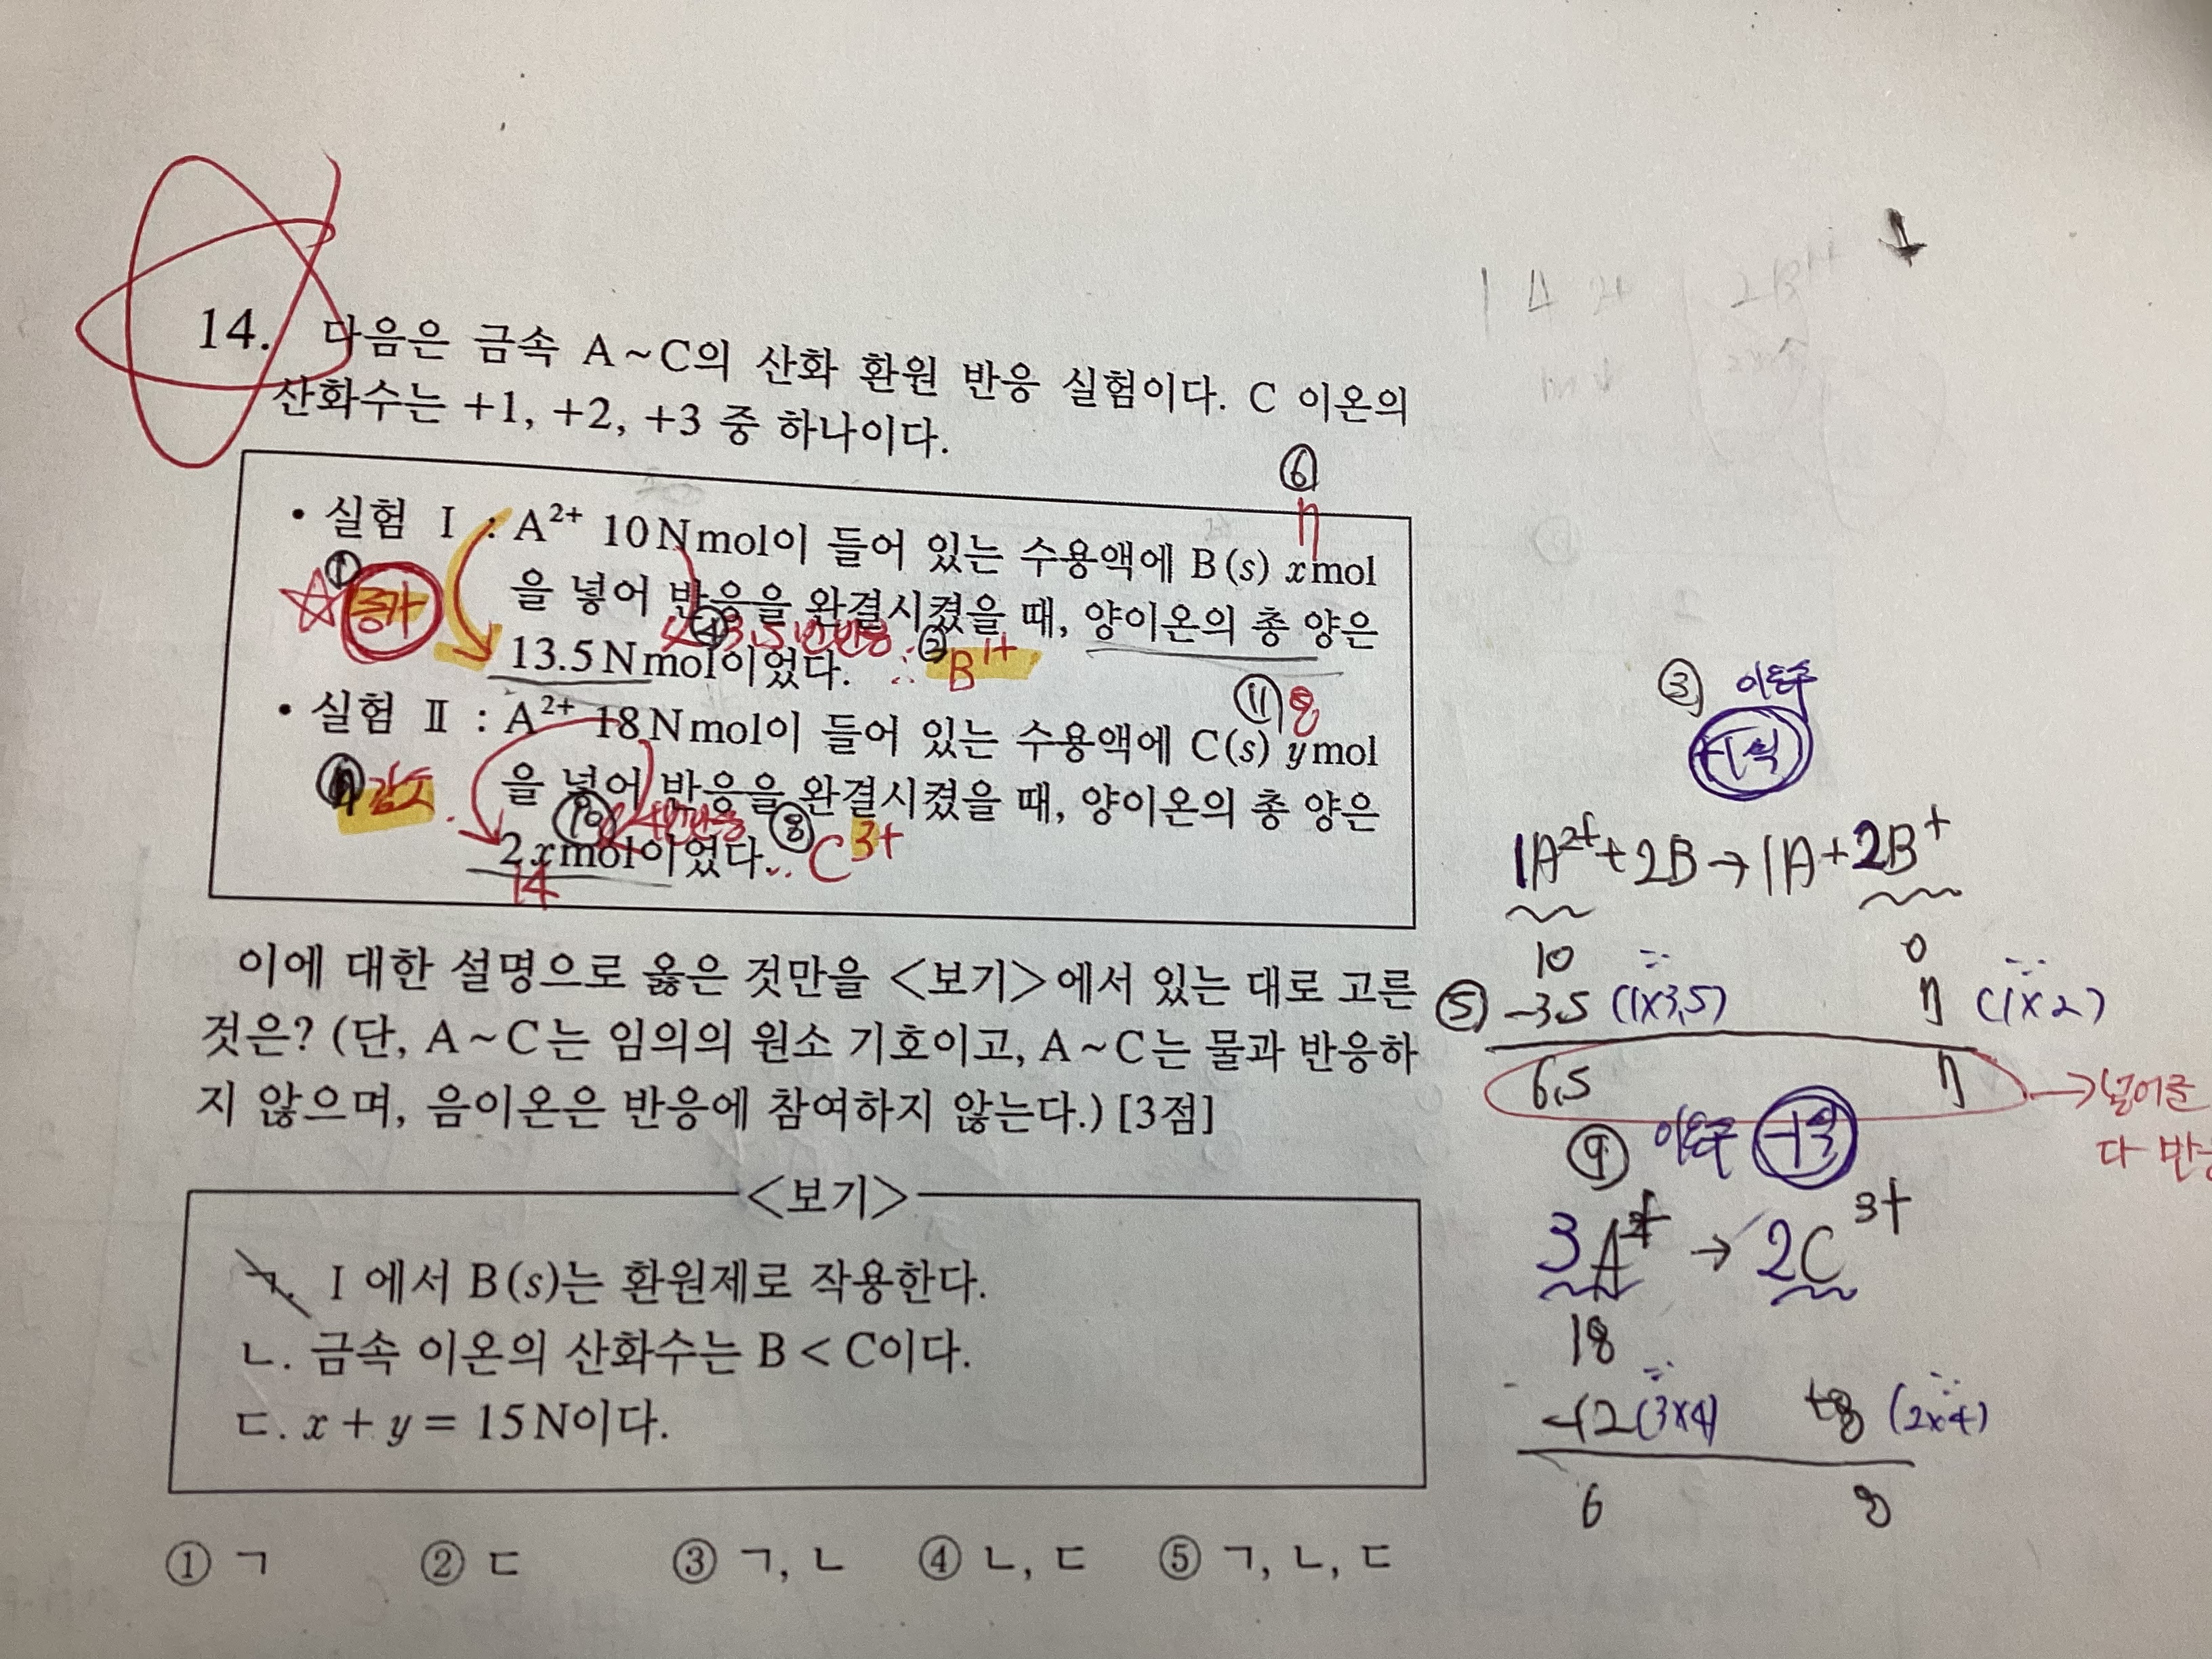 14. 다음은 금속 A~C의 산화 환원 반응 실험이다. C 이온의
산화수는 +1, +2, +3 중 하나이다.
⑥
n
• 실험 Ⅰ : A²⁺ 10 N mol이 들어 있는 수용액에 B(s) x mol
① 증가
을 넣어 반응을 완결시켰을 때, 양이온의 총 양은
④ 3.5번 반응
13.5 N mol이었다. ∴ ② B¹⁺
⑪ 8
• 실험 Ⅱ : A²⁺ 18 N mol이 들어 있는 수용액에 C(s) y mol
감소
을 넣어 반응을 완결시켰을 때, 양이온의 총 양은
⑩ 4번 반응
2x mol이었다. ∴ ⑧ C³⁺
14
이에 대한 설명으로 옳은 것만을 <보기>에서 있는 대로 고른
것은? (단, A~C는 임의의 원소 기호이고, A~C는 물과 반응하
지 않으며, 음이온은 반응에 참여하지 않는다.) [3점]
<보기>
ㄱ. Ⅰ에서 B(s)는 환원제로 작용한다.
ㄴ. 금속 이온의 산화수는 B < C이다.
ㄷ. x + y = 15 N이다.
① ㄱ ② ㄷ ③ ㄱ, ㄴ ④ ㄴ, ㄷ ⑤ ㄱ, ㄴ, ㄷ
③
1A²⁺ + 2B → 1A + 2B⁺
10 0
⑤ -3.5 (1×3.5) 7 (1×2)
6.5 7
→ 넣어준
다 반응
⑨
3A²⁺ → 2C³⁺
18
-12 (3×4) +8 (2×4)
6 8